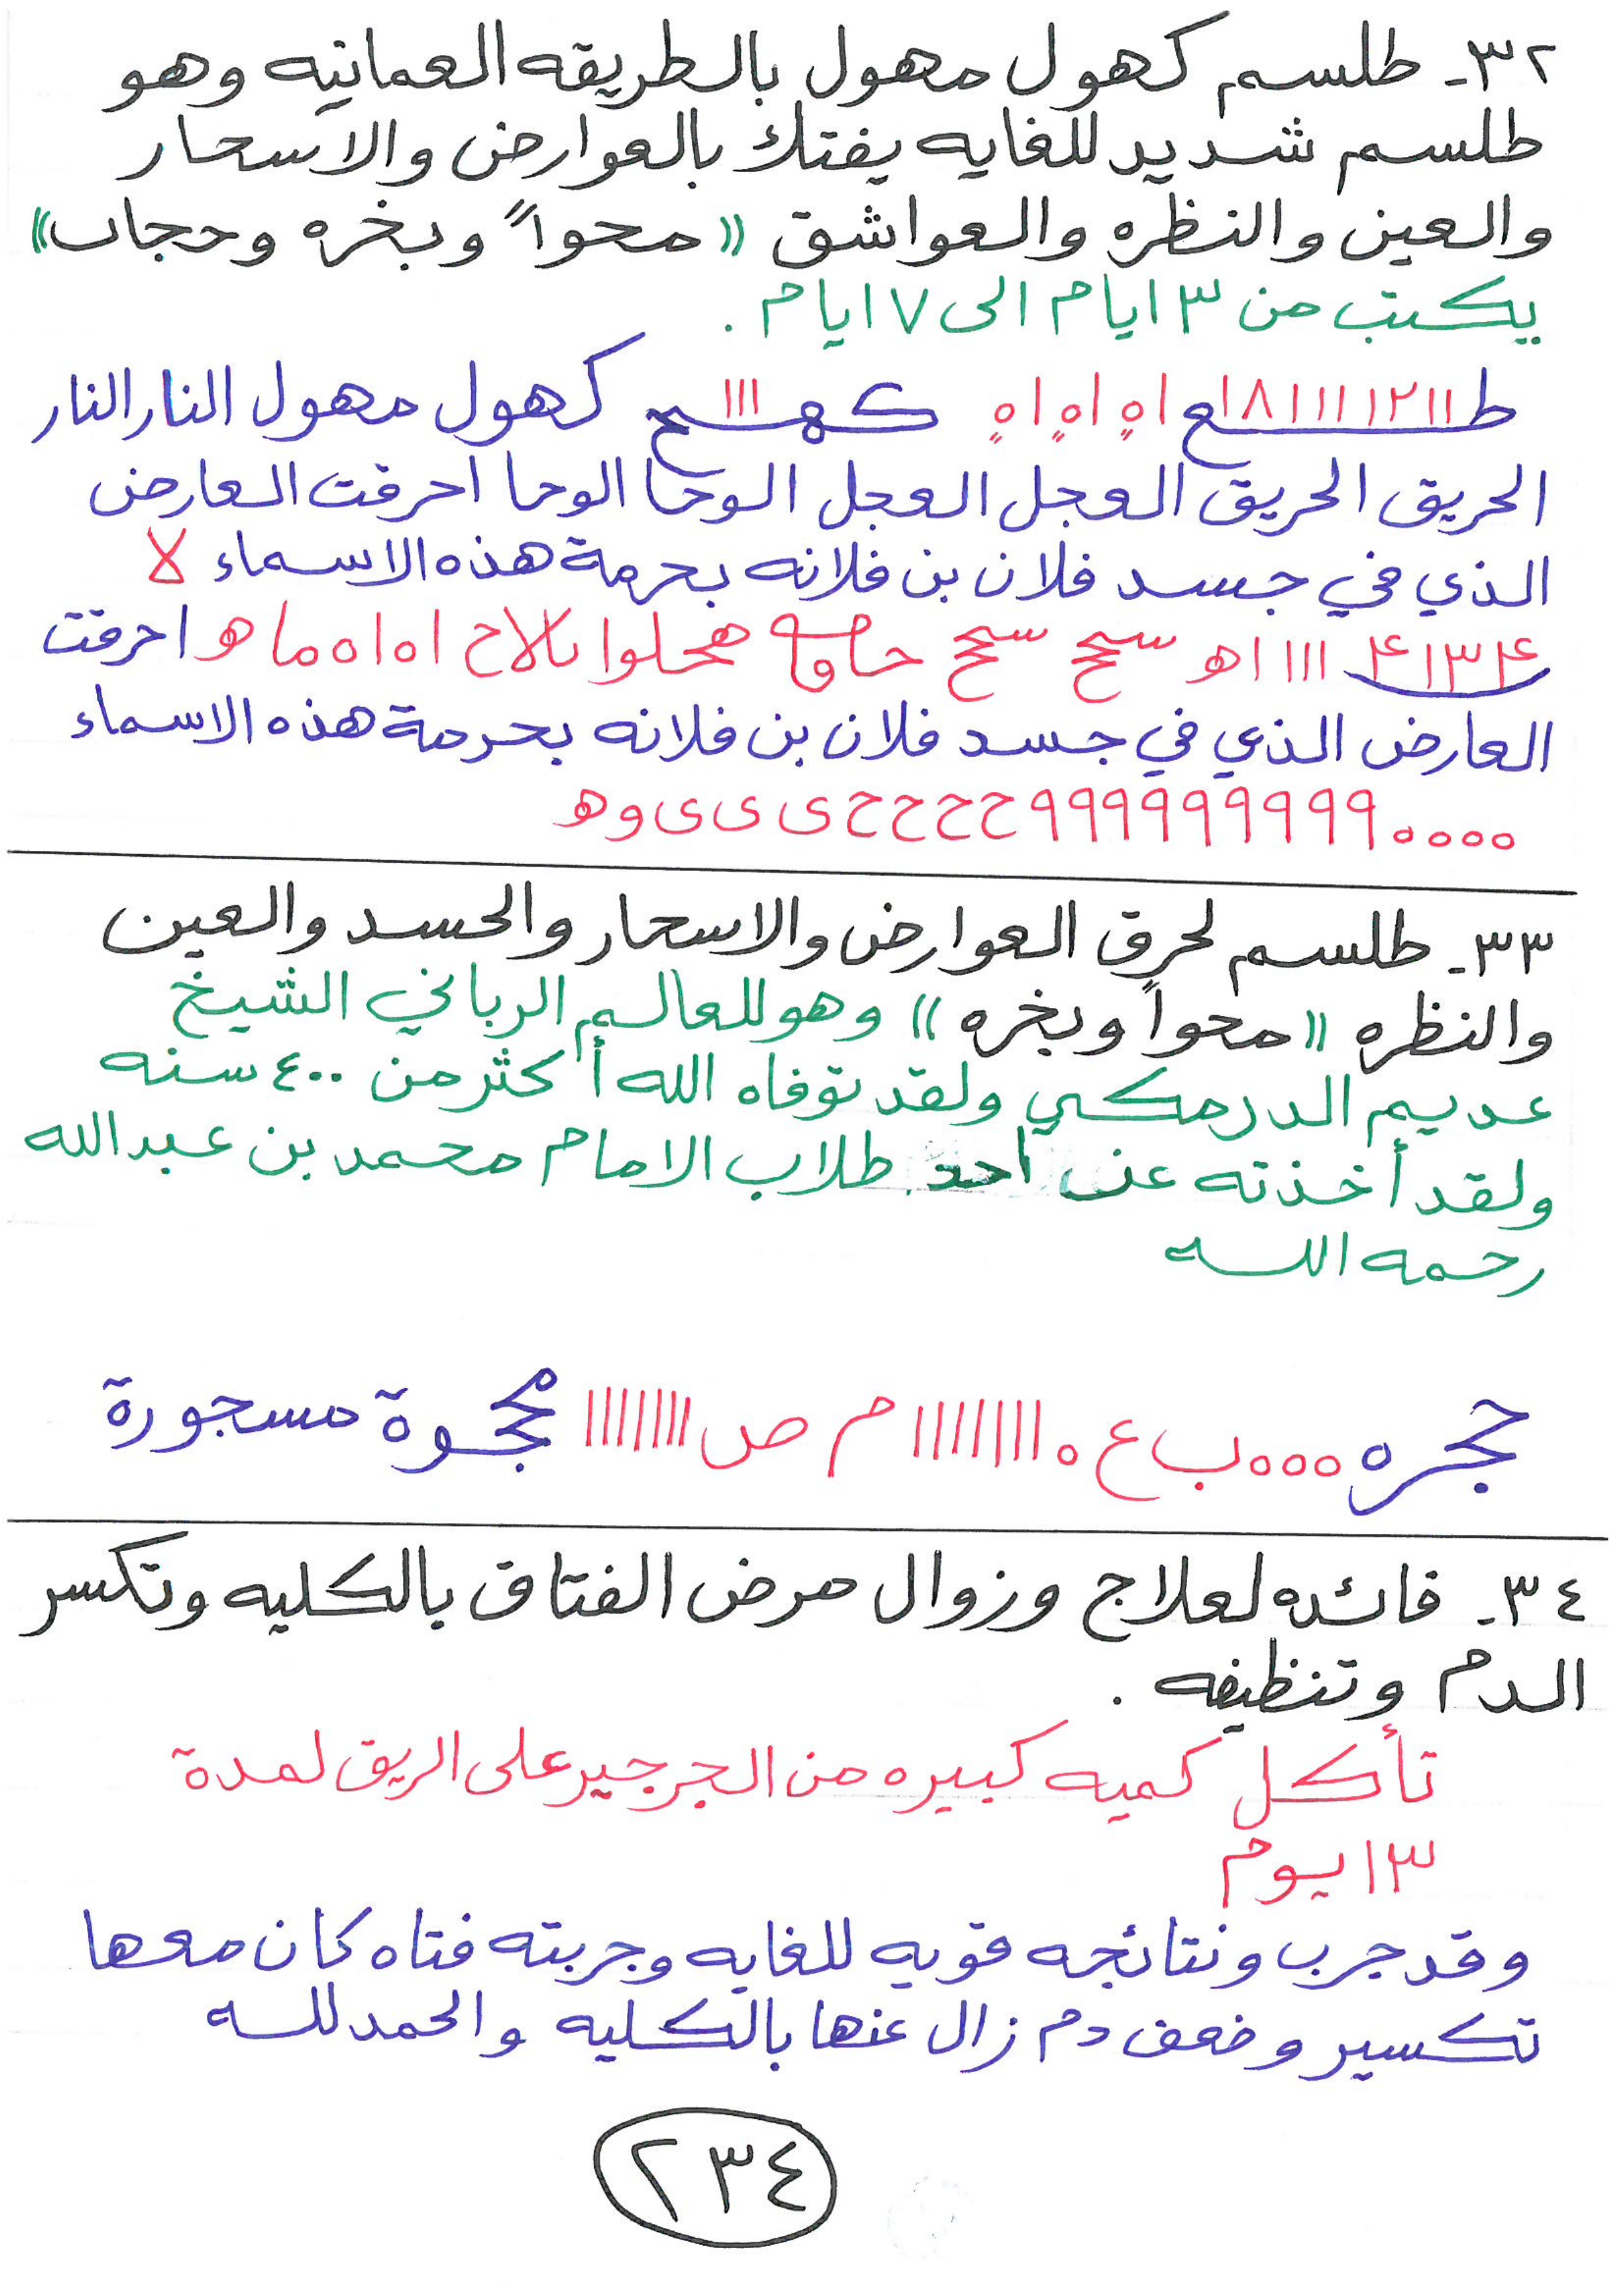 ٣٢- طلسم كهول مهول بالطريقه العمانيه وهو
طلسم شديد للغايه يفتك بالعوارض والاسحار
والعين والنظره والعواشق «محواً وبخره وحجاب»
يكتب من ٣ ايام الى ٧ ايام .
كهول مهول النار النار
الحريق الحريق العجل العجل الوحا الوحا احرقت العارض
الذي في جسد فلان بن فلانه بحرمة هذه الاسماء لا
احرقت
العارض الذي في جسد فلان بن فلانه بحرمة هذه الاسماء
٠٥٥٥٩٩٩٩٩٩٩٩٩٩ ح ح ح ح ى ى ى و ه
٣٣- طلسم لحرق العوارض والاسحار والحسد والعين
والنظره «محواً وبخره» وهو للعالم الرباني الشيخ
عديم الدرمكي ولقد توفاه الله أكثر من ٤٠٠ سنه
ولقد أخذته عن أحد طلاب الامام محمد بن عبدالله
رحمه الله
حجره ٥٥٥ ب ع ٥ ااااااااا م ص ااااااااا مسجورة
٣٤- فائده لعلاج وزوال مرض الفتاق بالكليه وتكسر
الدم وتنظيفه .
تأكل كميه كبيره من الجرجير على الريق لمدة
١٣ يوم
وقد جرب ونتائجه قويه للغايه وجربته فتاه كان معها
تكسير وضعف دم زال عنها بالكليه والحمد لله
٢٣٤